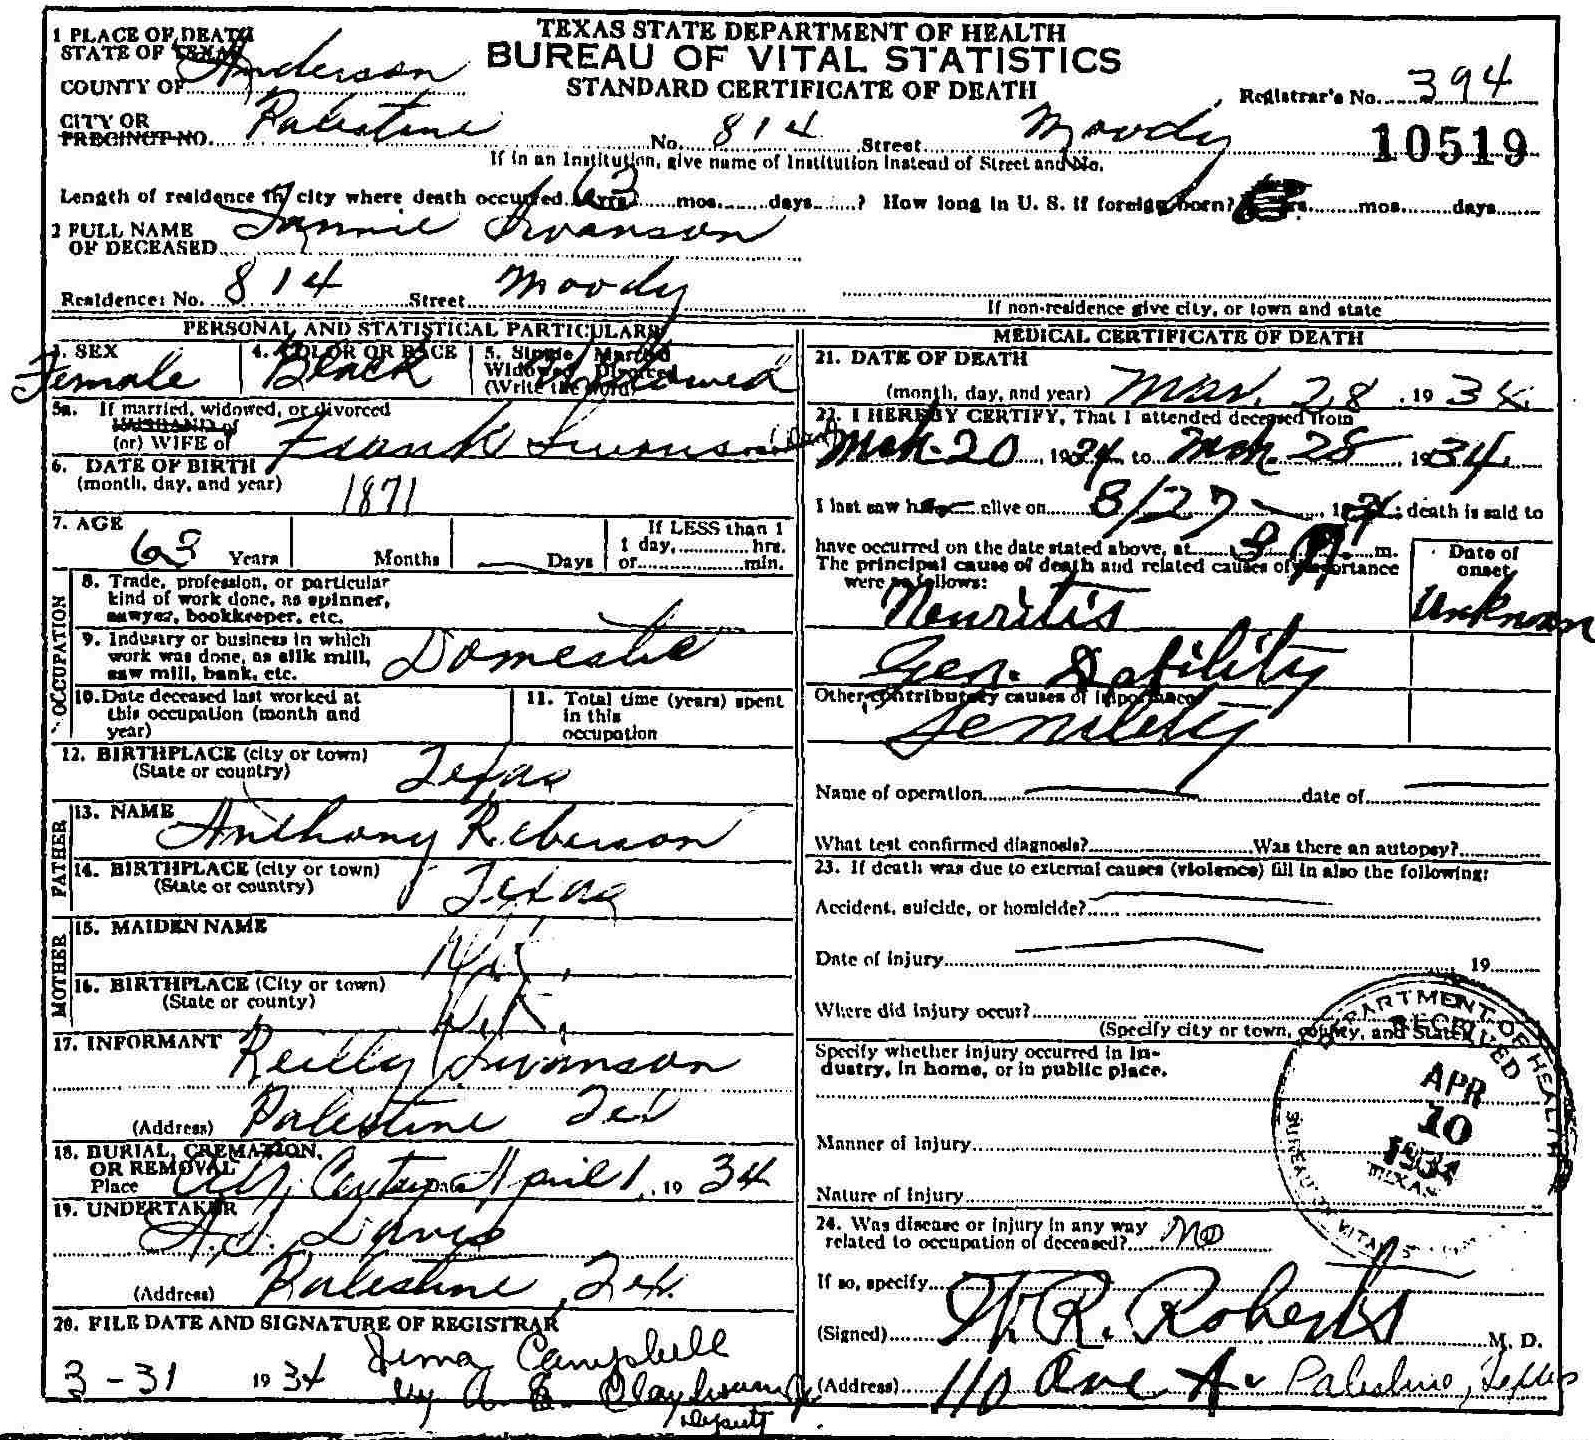 TEXAS STATE DEPARTMENT OF HEALTH
BUREAU OF VITAL STATISTICS
STANDARD CERTIFICATE OF DEATH
1 PLACE OF DEATH
STATE OF TEXAS
COUNTY OF Anderson
Registrar's No. 394
10519
CITY OR
PRECINCT NO. Palestine No. 814 Street Moody
If in an Institution, give name of Institution instead of Street and No.
Length of residence in city where death occurred 63 yrs. mos. days ? How long in U. S. if foreign born? yrs. mos. days
2 FULL NAME
OF DECEASED Fannie Swanson
Residence: No. 814 Street Moody
If non-residence give city, or town and state
PERSONAL AND STATISTICAL PARTICULARS
3. SEX Female
4. COLOR OR RACE Black
5. Single Married
Widowed Divorced
(Write the word) Widowed
5a. If married, widowed, or divorced
HUSBAND of
(or) WIFE of Frank Swanson
6. DATE OF BIRTH
(month, day, and year) 1871
7. AGE 63 Years Months Days
If LESS than 1
1 day, hrs.
or min.
OCCUPATION
8. Trade, profession, or particular
kind of work done, as spinner,
sawyer, bookkeeper, etc.
9. Industry or business in which
work was done, as silk mill,
saw mill, bank, etc. Domestic
10. Date deceased last worked at
this occupation (month and
year)
11. Total time (years) spent
in this
occupation
12. BIRTHPLACE (city or town)
(State or country) Texas
FATHER
13. NAME Anthony Roberson
14. BIRTHPLACE (city or town)
(State or country) Texas
MOTHER
15. MAIDEN NAME
16. BIRTHPLACE (City or town)
(State or county)
17. INFORMANT Reilly Swanson
(Address) Palestine Tex
18. BURIAL, CREMATION,
OR REMOVAL
Place City Date April 1, 1934
19. UNDERTAKER Davis
(Address) Palestine, Tex.
20. FILE DATE AND SIGNATURE OF REGISTRAR
3-31 1934 Campbell
by A. E.
Deputy
MEDICAL CERTIFICATE OF DEATH
21. DATE OF DEATH
(month, day, and year) Mar. 28, 1934
22. I HEREBY CERTIFY, That I attended deceased from
Mch. 20, 1934 to Mch. 28, 1934
I last saw her alive on 8/27 1934; death is said to
have occurred on the date stated above, at m.
The principal cause of death and related causes of importance
were as follows:
Date of
onset
Neuritis Unknown
Gen. Debility
Other contributory causes of importance
Senility
Name of operation date of
What test confirmed diagnosis? Was there an autopsy?
23. If death was due to external causes (violence) fill in also the following:
Accident, suicide, or homicide?
Date of injury 19
Where did injury occur?
(Specify city or town, county, and State)
Specify whether injury occurred in in-
dustry, in home, or in public place.
Manner of injury
Nature of injury
24. Was disease or injury in any way
related to occupation of deceased? No
If so, specify
(Signed) W. R. Roberts M. D.
(Address) 110 Ave A. Palestine, Texas
DEPARTMENT OF HEALTH
RECEIVED
APR
10
1934
TEXAS
BUREAU OF VITAL